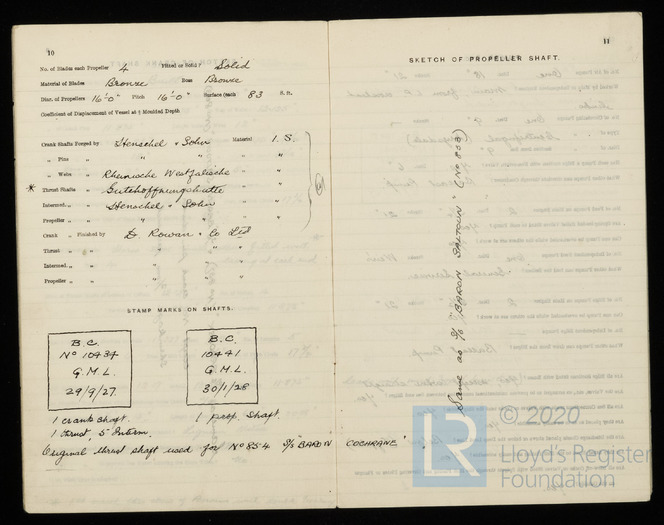 10
No. of Blades each Propeller 4 Fitted or Solid? Solid
Material of Blades Bronze Boss Bronze
Diar. of Propellers 16'-0" Pitch 16'-0" Surface (each 83 S. ft.
Coefficient of Displacement of Vessel at ¾ Moulded Depth
Crank Shafts Forged by Henschel & Sohn Material I. S.
" Pins " " " "
" Webs " Rheinische Westfalische " "
* Thrust Shafts " Gutehoffnungshutte " "
Intermed. " " Henschel & Sohn " "
Propeller " " " " " "
Crank " Finished by D. Rowan & Co Ltd
Thrust " " " " "
Intermed. " " " " "
Propeller " " " " "
STAMP MARKS ON SHAFTS.
B.C.
No 10434
G.M.L.
29/9/27.
1 crank shaft.
1 thrust, 5 Interm.
B.C.
10441
G.M.L.
30/1/28
1 prop. shaft.
Original thrust shaft used for No 854 S/S "BARON COCHRANE"
11
SKETCH OF PROPELLER SHAFT.
Same as S/S "BARON SALTOUN" (No 803)
© 2020
LR
Lloyd's Register
Foundation